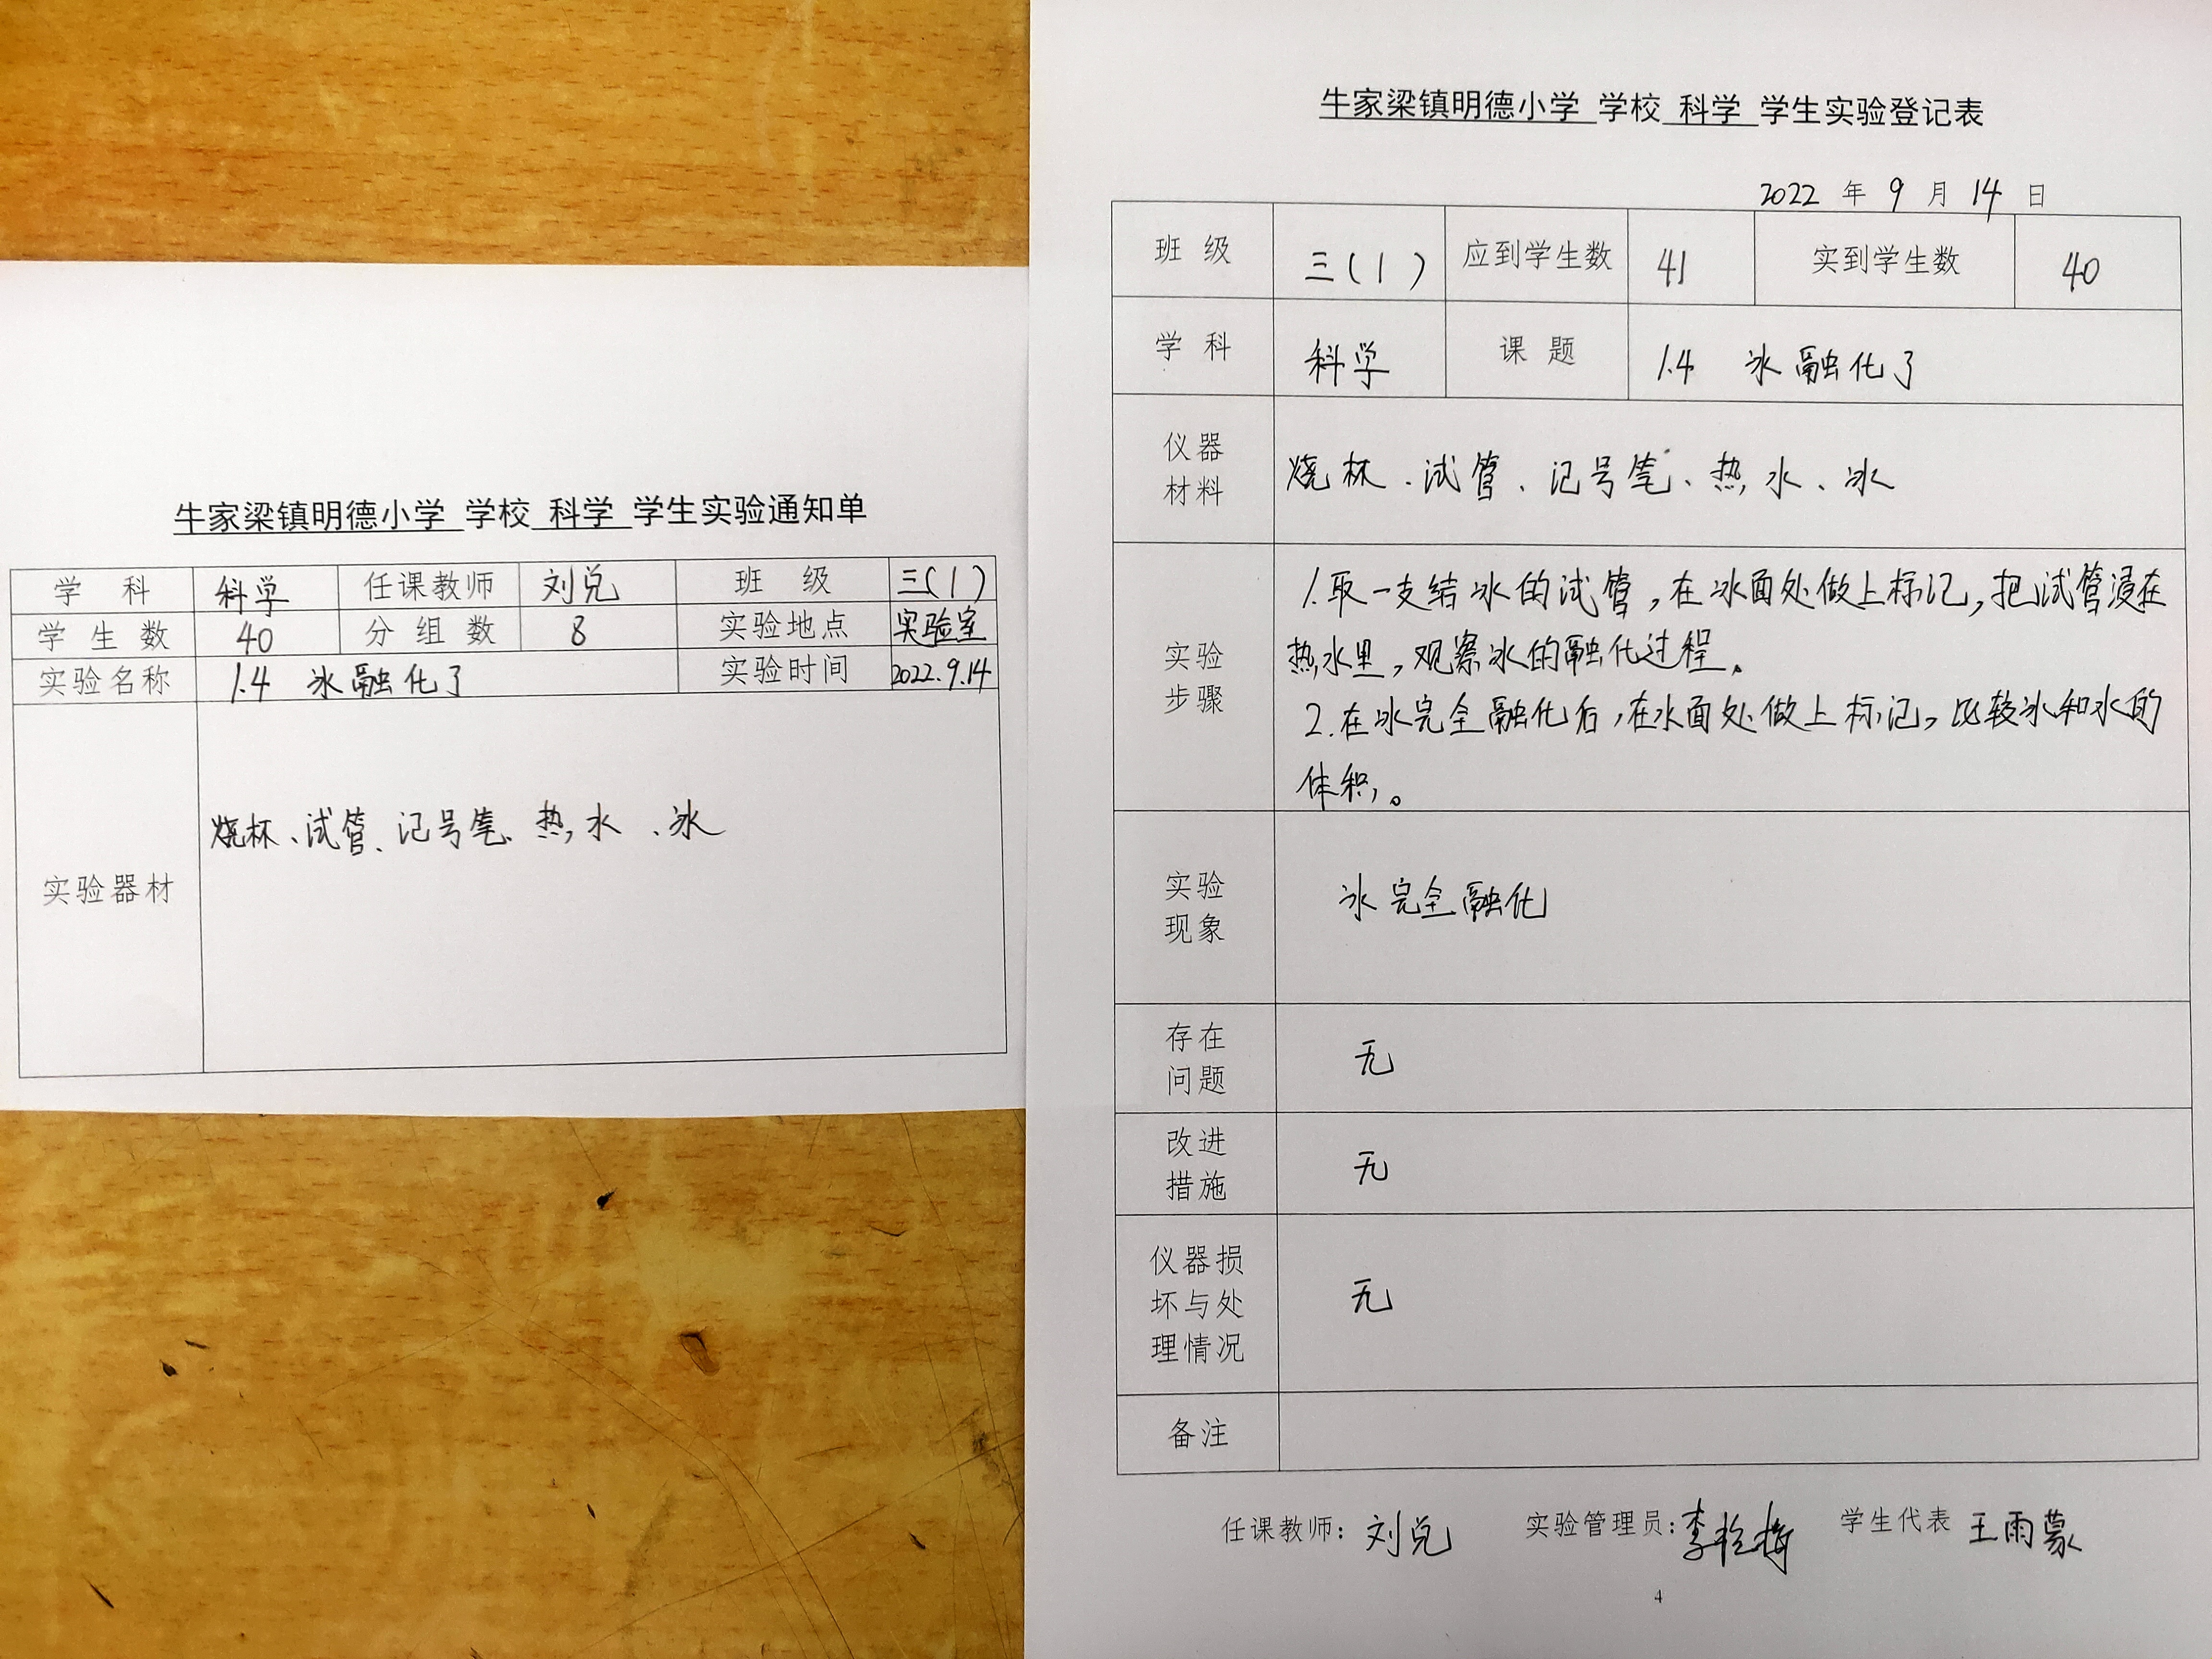 牛家梁镇明德小学 学校 科学 学生实验通知单
学 科 科学 任课教师 刘兑 班 级 三(1)
学 生 数 40 分 组 数 8 实验地点 实验室
实验名称 1.4 冰融化了 实验时间 2022.9.14
实验器材 烧杯、试管、记号笔、热水、冰
牛家梁镇明德小学 学校 科学 学生实验登记表
2022 年 9 月 14 日
班 级 三(1) 应到学生数 41 实到学生数 40
学 科 科学 课 题 1.4 冰融化了
仪器
材料
烧杯、试管、记号笔、热水、冰
实验
步骤
1.取一支结冰的试管,在冰面处做上标记,把试管浸在
热水里,观察冰的融化过程。
2.在冰完全融化后,在水面处做上标记,比较冰和水的
体积。
实验
现象
冰完全融化
存在
问题
无
改进
措施
无
仪器损
坏与处
理情况
无
备注
任课教师:刘兑 实验管理员:李 学生代表 王雨蒙
4